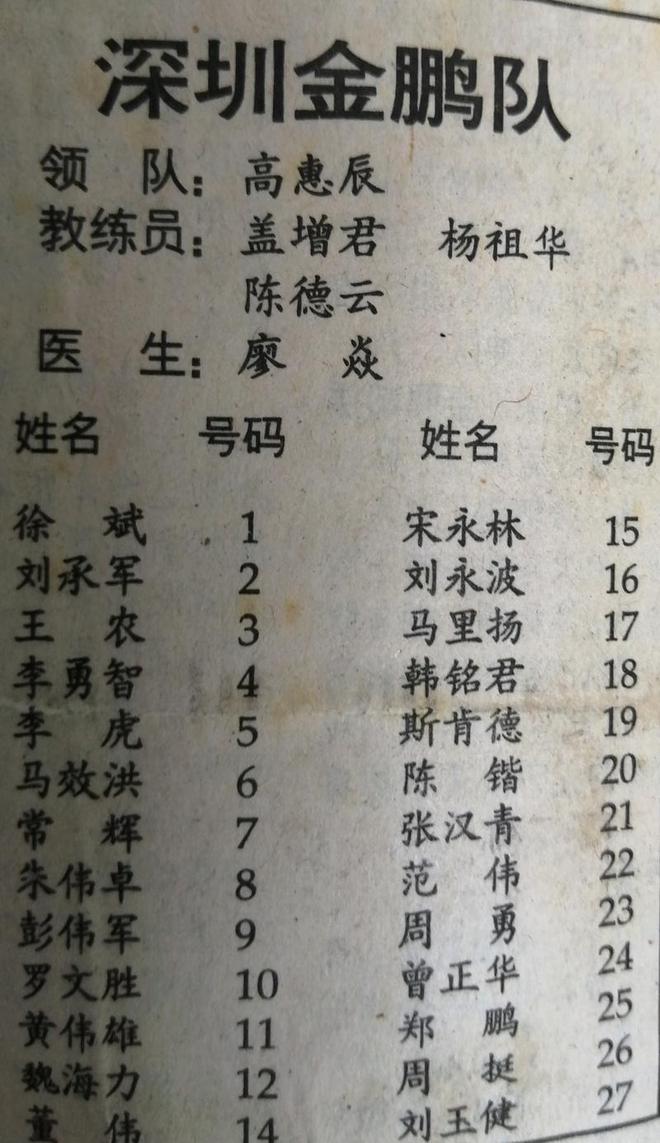 深圳金鹏队
领 队：高惠辰
教练员：盖增君 杨祖华
陈德云
医 生：廖 焱
姓名 号码 姓名 号码
徐 斌 1 宋永林 15
刘承军 2 刘永波 16
王 农 3 马里扬 17
李勇智 4 韩铭君 18
李 虎 5 斯肯德 19
马效洪 6 陈 锴 20
常 辉 7 张汉青 21
朱伟卓 8 范 伟 22
彭伟军 9 周 勇 23
罗文胜 10 曾正华 24
黄伟雄 11 郑 鹏 25
魏海力 12 周 挺 26
董 伟 14 刘玉健 27